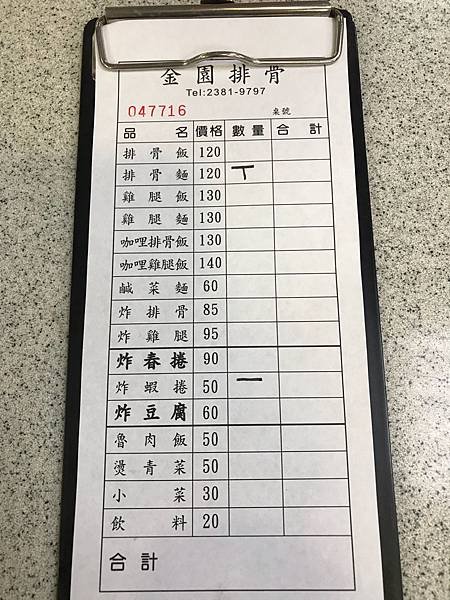 金園排骨
Tel:2381-9797
047716 桌號
品名 價格 數量 合計
排骨飯 120
排骨麵 120 丅
雞腿飯 130
雞腿麵 130
咖哩排骨飯 130
咖哩雞腿飯 140
鹹菜麵 60
炸排骨 85
炸雞腿 95
炸春捲 90
炸蝦捲 50 一
炸豆腐 60
魯肉飯 50
燙青菜 50
小菜 30
飲料 20
合計